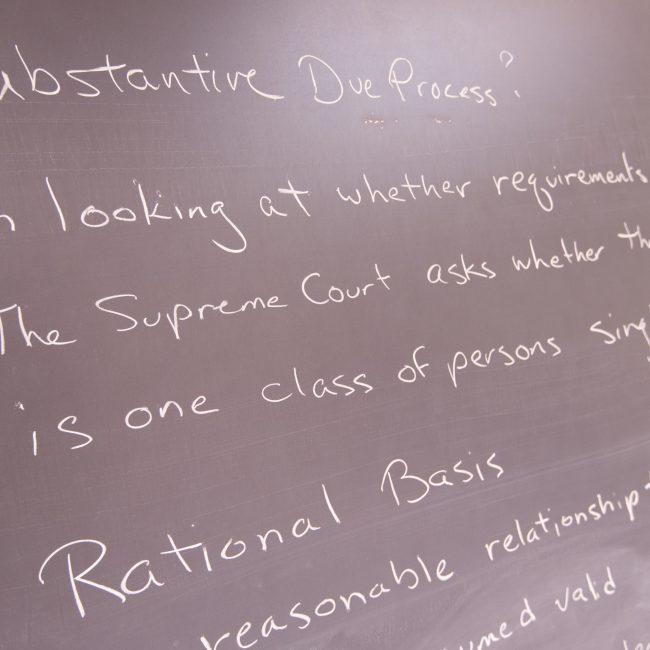 ubstantive Due Process?
n looking at whether requirements
The Supreme Court asks whether th
is one class of persons sing
Rational Basis
reasonable relationship
umed valid